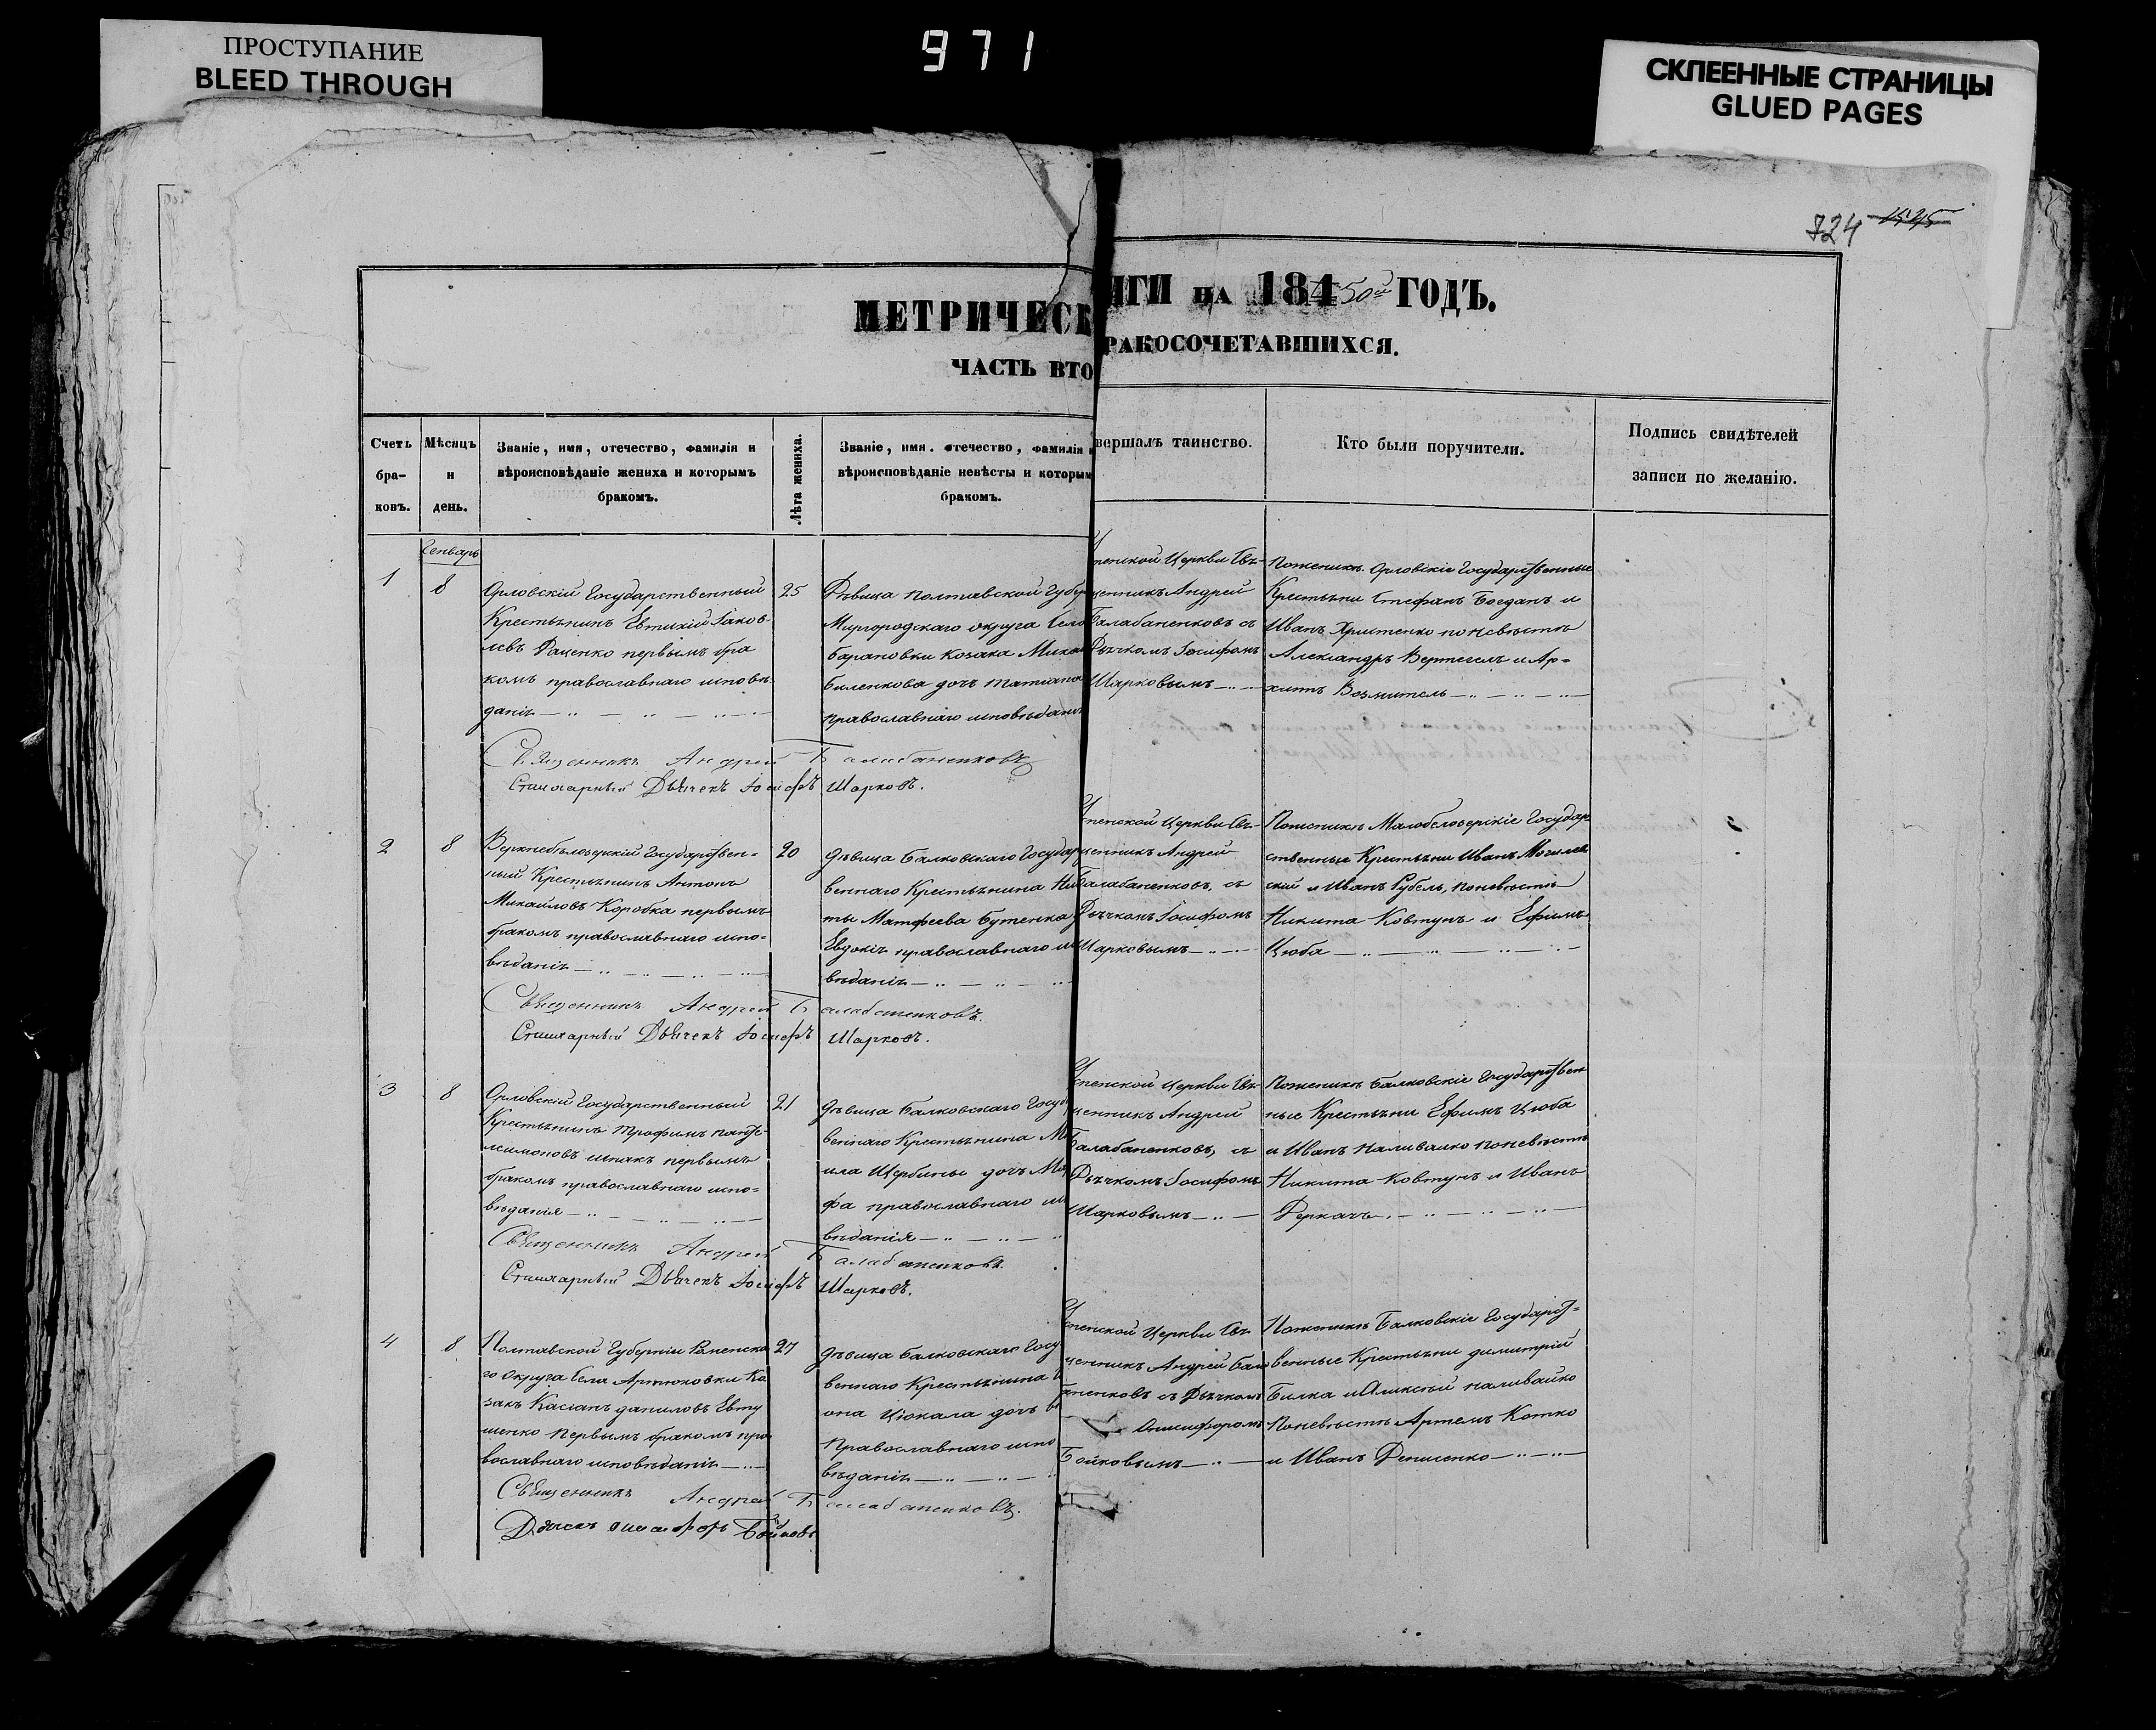 ПРОСТУПАНИЕ
BLEED THROUGH
971
СКЛЕЕННЫЕ СТРАНИЦЫ
GLUED PAGES
724 1525
МЕТРИЧЕСК
ИГИ НА 184 50й ГОДЪ.
ЧАСТЬ ВТО
РАКОСОЧЕТАВШИХСЯ.
Счетъ бра-ковъ.
Мѣсяцъ и день.
Званіе, имя, отечество, фамилія и
вѣроисповѣданіе жениха и которымъ
бракомъ.
Лѣта жениха.
Званіе, имя. отечество, фамилія и
вѣроисповѣданіе невѣсты и которым
бракомъ.
вершалъ таинство.
Кто были поручители.
Подпись свидѣтелей
записи по желанію.
Генварь
1
8
Орловскій Государственный
Крестьянинъ Евтихій Іаков-
левъ Даценко первымъ бра
комъ православнаго исповѣ-
данія
25
Дѣвица Полтавской Губер
Миргородскаго округа Села
Барановки Козака Миха
Биленкова дочь Татіана
православнаго исповѣдан
пенской Церкви Свя-
щенникъ Андрей
Балабаненковъ съ
Дьячкомъ Іосифомъ
Шарковымъ
Поженихѣ Орловскіе Государственные
Крестьяни Стефанъ Богданъ и
Иванъ Христенко поневѣстѣ
Александръ Вертегелъ и Ар=
хипъ Возмитель
Священникъ Андрей Балабаненковъ
Стихарный Дьячекъ Іосифъ Шарковъ.
2
8
Верхнебѣлозерскій Государствен=
ный Крестьянинъ Антонъ
Михайловъ Коробка первымъ
бракомъ православнаго испо=
вѣданія
20
дѣвица Балковскаго Государ
веннаго Крестьянина Ни
ты Матфеева Бутенка
Евдокія православнаго и
вѣданія
пенской Церкви Свя-
щенникъ Андрей
Балабаненковъ, съ
Дьячкомъ Іосифомъ
Шарковымъ
Поженихѣ Малобелозерскіе Государ
ственные Крестьяни Иванъ Могилев
скій и Иванъ Рубель, поневѣстѣ
Никита Ковтунъ и Ефимъ
Цюба
Священникъ Андрей Балабаненковъ.
Стихарный Дьячекъ Іосифъ Шарковъ.
3
8
Орловскій Государственный
Крестьянинъ Трофимъ Панте-
леимоновъ Шпакъ первымъ
бракомъ православнаго испо=
вѣданія
21
дѣвица Балковскаго Госуд
веннаго Крестьянина Ми
ила Щербины дочь Ма
фа православнаго и
вѣданія
пенской Церкви Свя-
щенникъ Андрей
Балабаненковъ, съ
Дьячкомъ Іосифомъ
Шарковымъ
Поженихѣ Балковскіе Государствен
ные Крестьяни Ефимъ Цюба
и Иванъ Наливайко поневѣстѣ
Никита Ковтунъ и Иванъ
Деркачъ
Священникъ Андрей Балабаненковъ.
Стихарный Дьячекъ Іосифъ Шарковъ.
4
8
Полтавской Губерніи Роменска
го округа Села Артюховки Ка
закъ Касіанъ даниловъ Евту
шенко первымъ бракомъ пра
вославнаго исповѣданія
27
дѣвица Балковскаго Госу
веннаго Крестьянина
она Цюкала дочь
Православнаго испо
вѣданія
пенской Церкви Свя
щенникъ Андрей Бала
баненковъ съ Дьячкомъ
Онисифоромъ
Бойковымъ
Поженихѣ Балковскіе Государст=
венные Крестьяни димитрій
Билка и Алексѣй наливайко
Поневѣстѣ Артемъ Котко
и Иванъ Денисенко
Священникъ Андрей Балабаненковъ.
Дьячекъ Онисифоръ Бойковъ